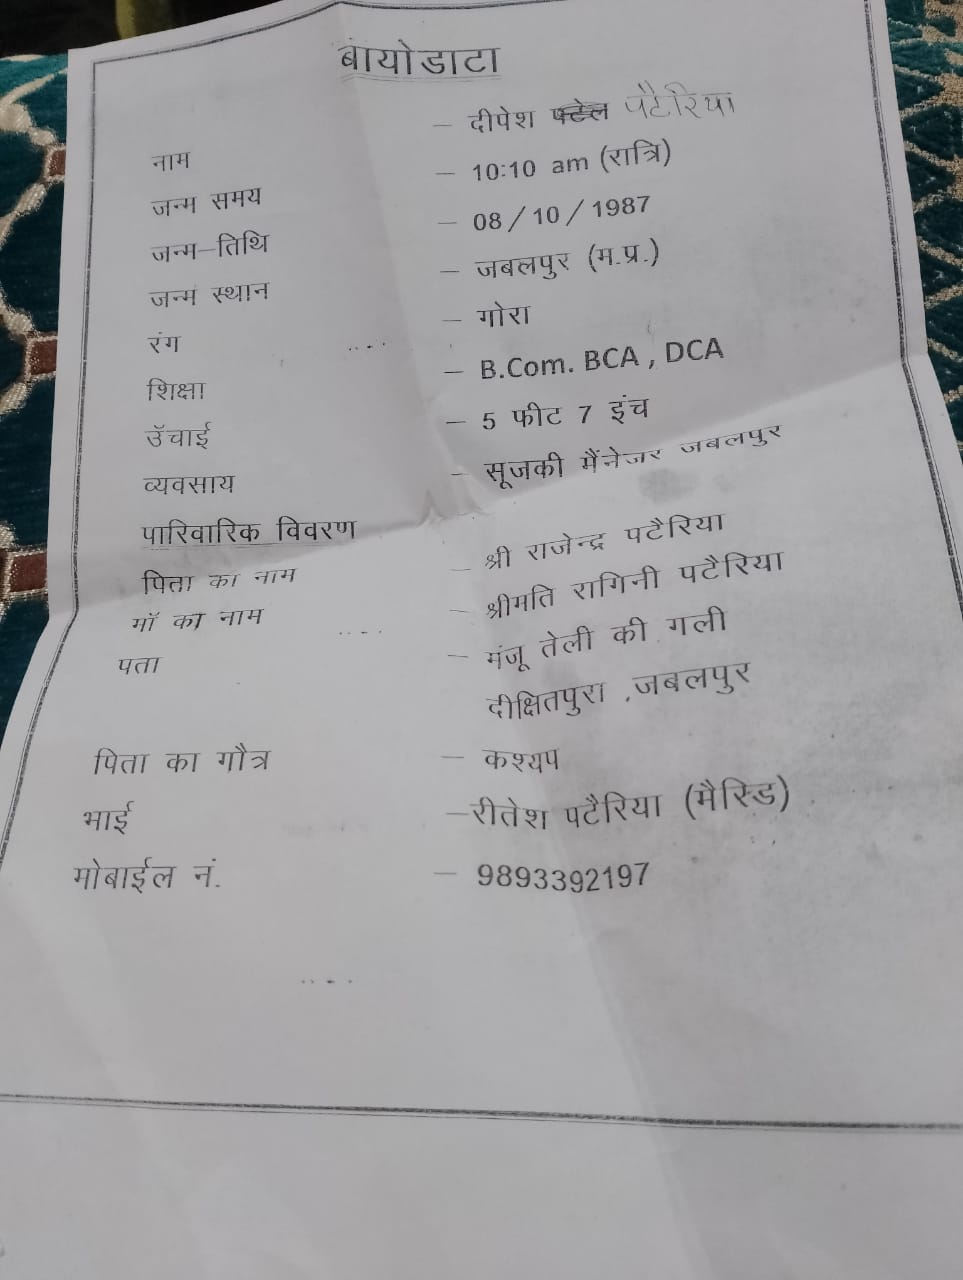 बायोडाटा
नाम – दीपेश पटेल पटैरिया
जन्म समय – 10:10 am (रात्रि)
जन्म–तिथि – 08 / 10 / 1987
जन्म स्थान – जबलपुर (म.प्र.)
रंग – गोरा
शिक्षा – B.Com. BCA , DCA
उॅचाई – 5 फीट 7 इंच
व्यवसाय – सूजकी मैंनेजर जबलपुर
पारिवारिक विवरण
पिता का नाम – श्री राजेन्द्र पटैरिया
मॉ का नाम – श्रीमति रागिनी पटैरिया
पता – मंजू तेली की गली
दीक्षितपुरा ,जबलपुर
पिता का गौत्र – कश्यप
भाई –रीतेश पटैरिया (मैरिड)
मोबाईल नं. – 9893392197